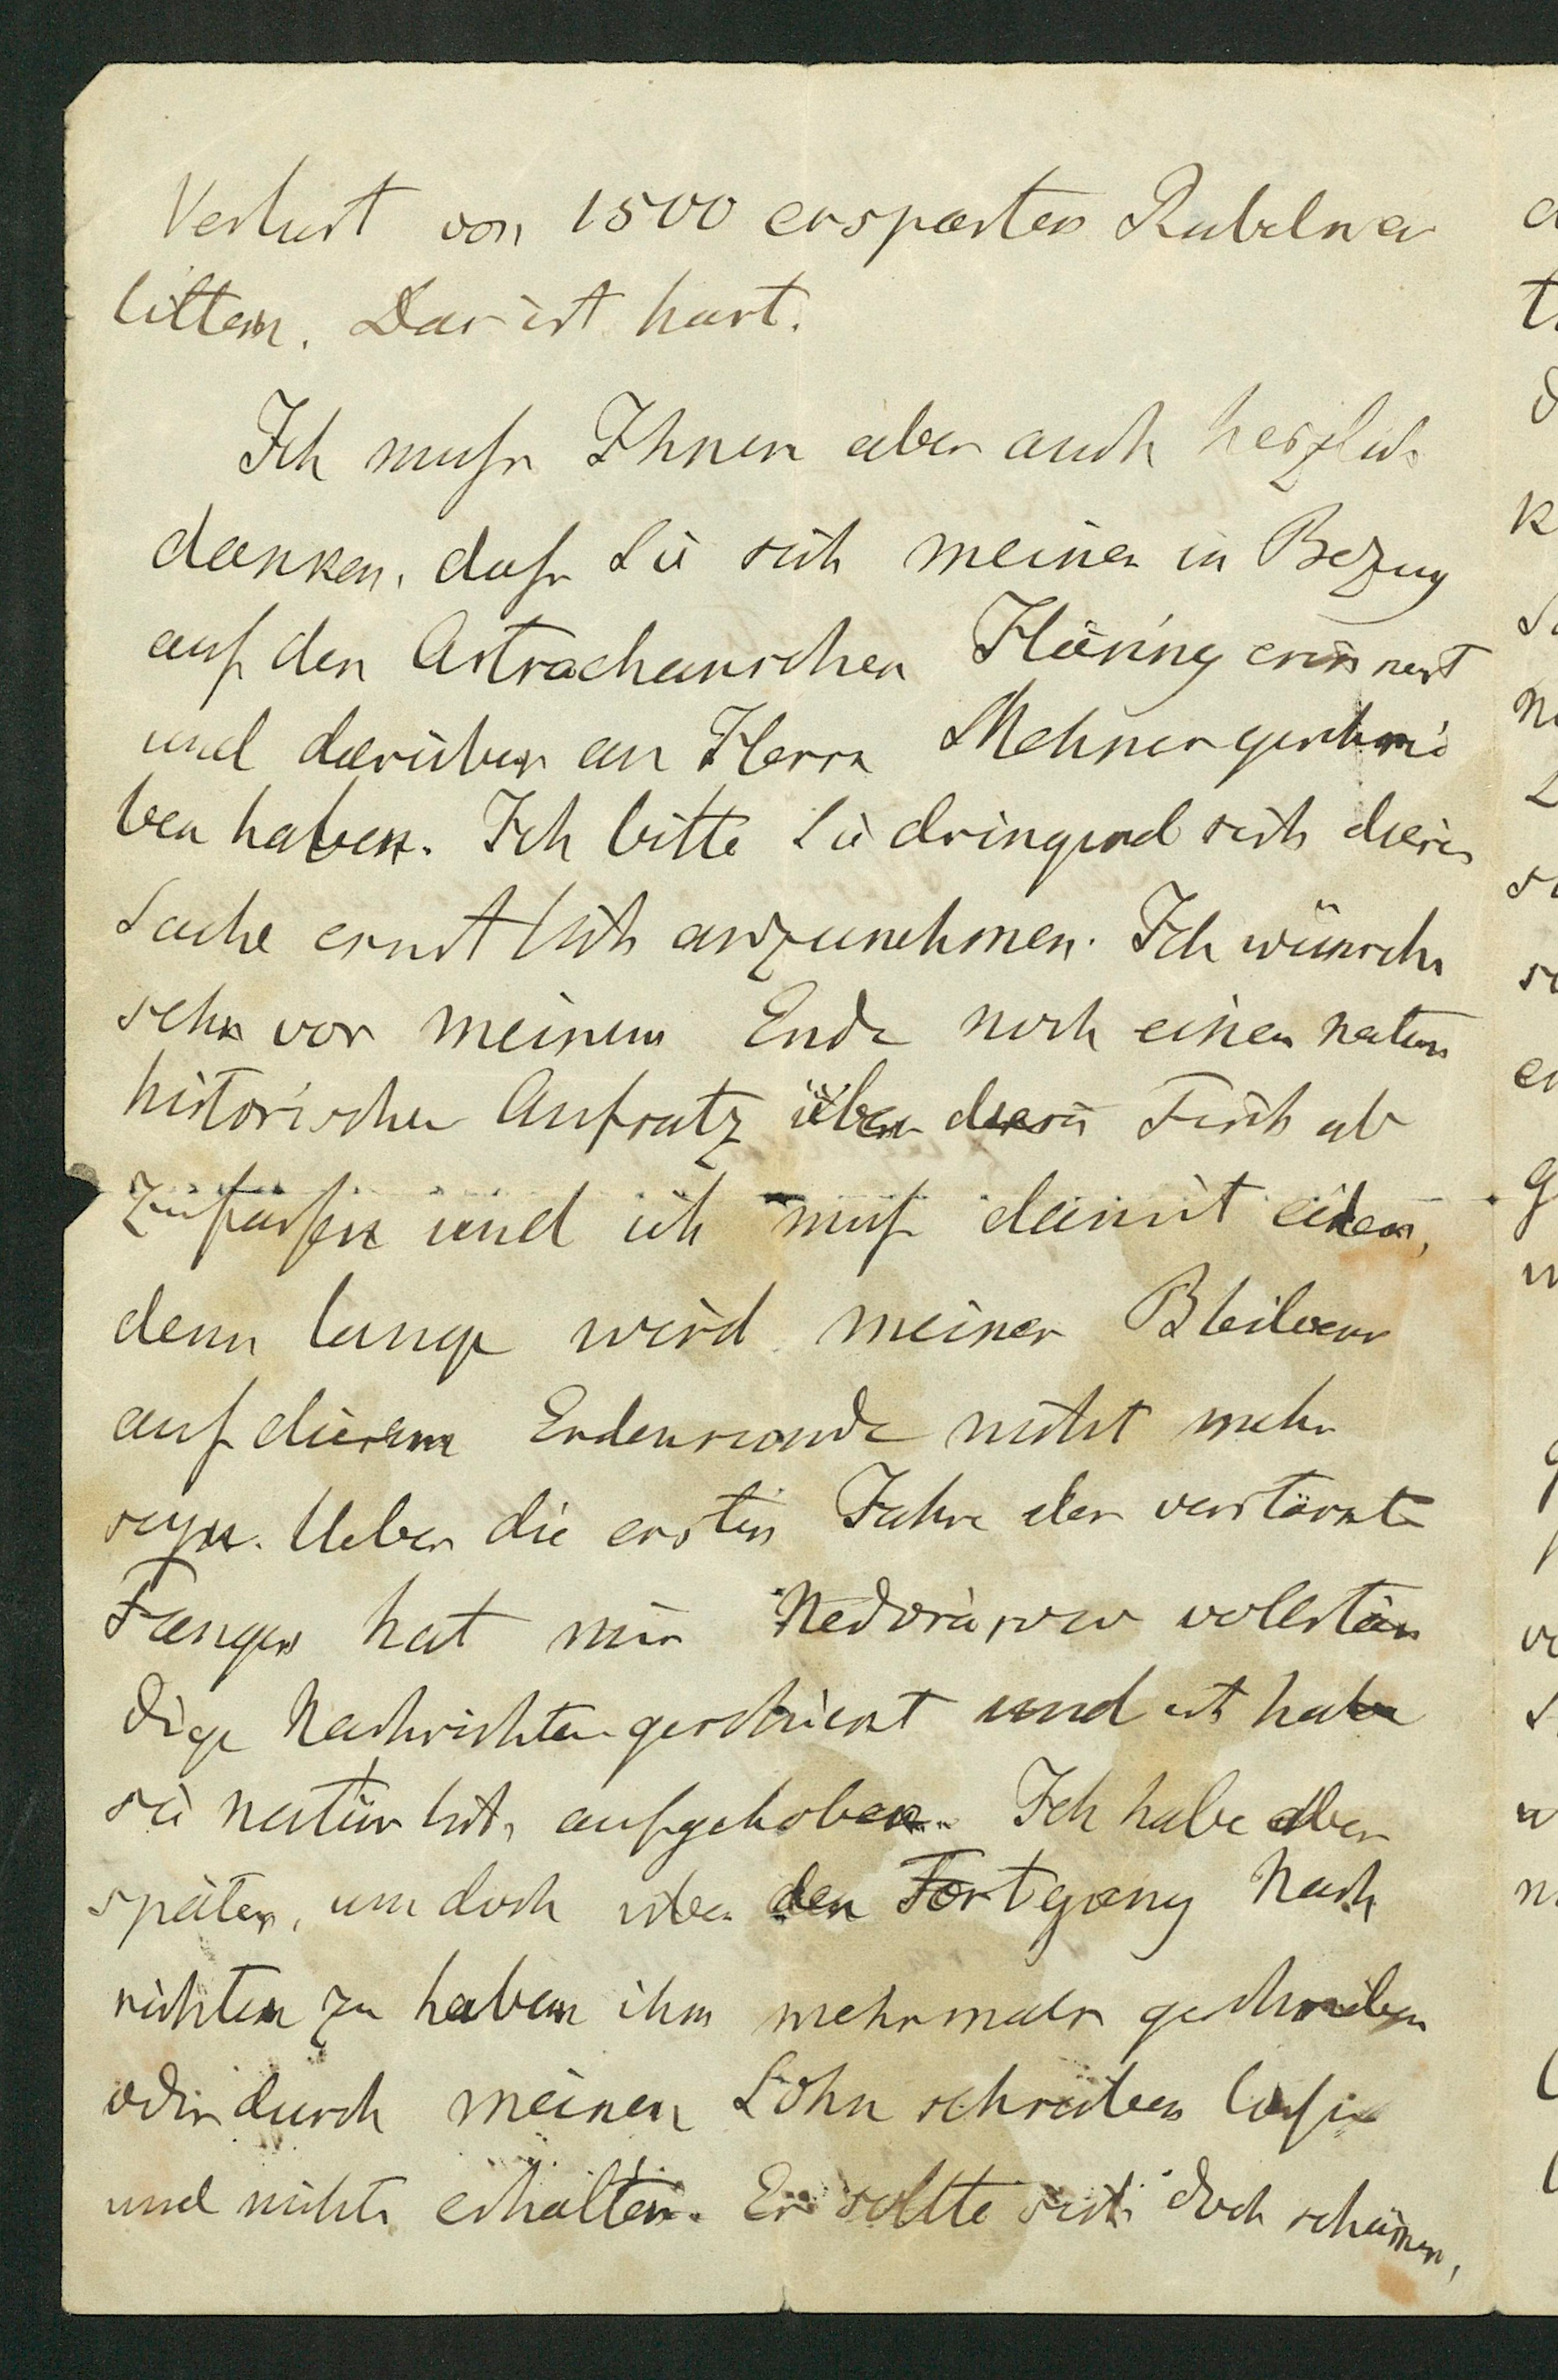 Verlust von 1500 ersparten Rubeln er
litten. Das ist hart.
Ich muß Ihnen aber auch herzlich
danken, daß Sie sich meiner in Bezug
auf den Astrachanschen Häring erinnert
und darüber an Herrn geschrie
ben haben. Ich bitte Sie dringend sich dieser
Sache ernstlich anzunehmen. Ich wünsche
sehr vor meinem Ende noch einen natur
historischen Aufsatz über diesen Fisch ab
zufassen und ich muß damit eilen,
denn lange wird meines Bleibens
auf diesem Erdenrunde nicht mehr
seyn. Ueber die ersten Jahre des verstärkten
Fanges hat mir vollstän
dige Nachrichten geschickt und ich habe
sie natürlich aufgehoben. Ich habe aber
später, um doch über den Fortgang Nach
richten zu haben ihm mehrmals geschrieben
oder durch meinen Sohn schreiben lassen
und nichts erhalten. Er sollte sich doch schämen,